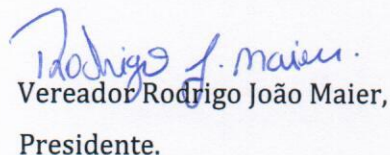 Rodrigo J. Maier.
Vereador Rodrigo João Maier,
Presidente.